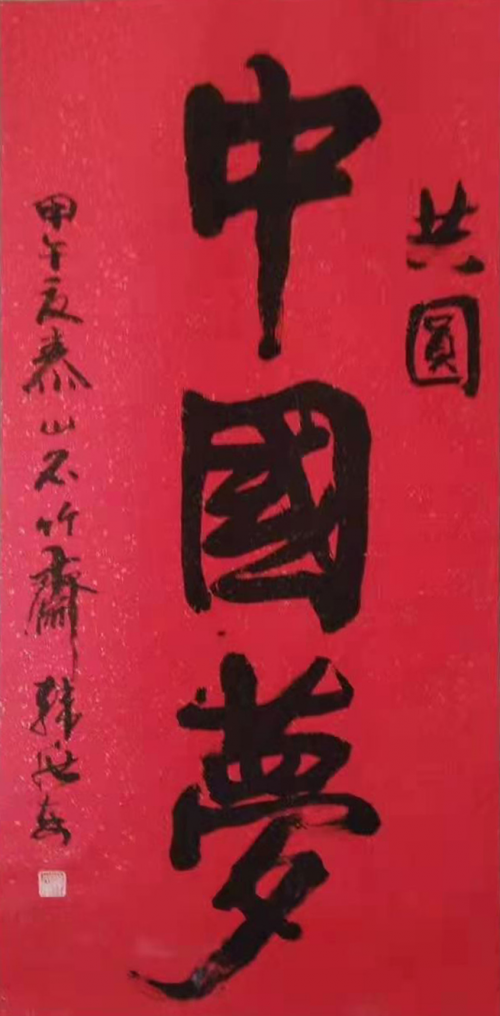 共圓
中國夢
甲午夏泰山石竹齋韩世安